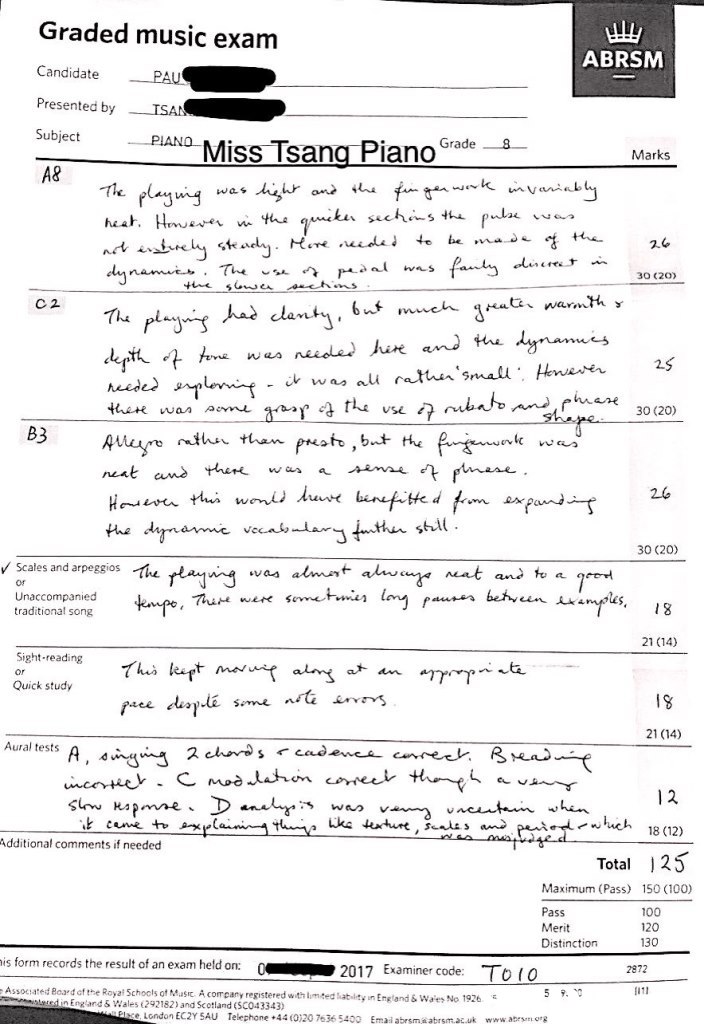 Graded music exam
ABRSM
Candidate PAU
Presented by TSAN
Subject PIANO Grade 8
Miss Tsang Piano
Marks
A8
The playing was light and the fingerwork invariably
neat. However in the quicker sections the pulse was
not entirely steady. More needed to be made of the
dynamics. The use of pedal was fairly discreet in
the slower sections.
26
30 (20)
C2
The playing had clarity, but much greater warmth &
depth of tone was needed here and the dynamics
needed exploring - it was all rather 'small'. However
there was some grasp of the use of rubato and phrase
shape.
25
30 (20)
B3
Allegro rather than presto, but the fingerwork was
neat and there was a sense of phrase.
However this would have benefitted from expanding
the dynamic vocabulary further still.
26
30 (20)
✓ Scales and arpeggios
or
Unaccompanied
traditional song
The playing was almost always neat and to a good
tempo. There were sometimes long pauses between examples.
18
21 (14)
Sight-reading
or
Quick study
This kept moving along at an appropriate
pace despite some note errors.
18
21 (14)
Aural tests
A, singing 2 chords & cadence correct. B reading
incorrect. C modulation correct though a very
slow response. D analysis was very uncertain when
it came to explaining things like texture, scales and period - which
was misjudged.
12
18 (12)
Additional comments if needed
Total 125
Maximum (Pass) 150 (100)
Pass 100
Merit 120
Distinction 130
is form records the result of an exam held on: 0 2017 Examiner code: T010
2872
e Associated Board of the Royal Schools of Music. A company registered with limited liability in England & Wales No 1926
5 9
registered in England & Wales (292182) and Scotland (SC043343)
Place, London EC2Y 5AU Telephone +44 (0)20 7636 5400 Email abrsm@abrsm.ac.uk www.abrsm.org